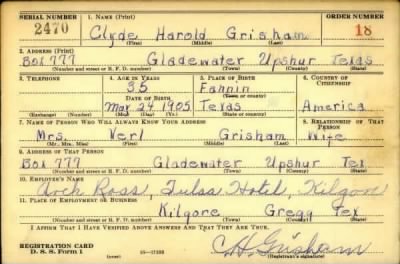 SERIAL NUMBER 1. NAME (Print) ORDER NUMBER
2470 Clyde Harold Grisham 18
(First) (Middle) (Last)
2. ADDRESS (Print)
Box 777 Gladewater Upshur Texas
(Number and street or R. F. D. number) (Town) (County) (State)
3. TELEPHONE 4. AGE IN YEARS 5. PLACE OF BIRTH 6. COUNTRY OF CITIZENSHIP
35 Fannin
DATE OF BIRTH (Town or county)
May 24 1905 Texas America
(Exchange) (Number) (Mo.) (Day) (Yr.) (State or country)
7. NAME OF PERSON WHO WILL ALWAYS KNOW YOUR ADDRESS 8. RELATIONSHIP OF THAT PERSON
Mrs. Verl Grisham Wife
(Mr., Mrs., Miss) (First) (Middle) (Last)
9. ADDRESS OF THAT PERSON
Box 777 Gladewater Upshur Tex
(Number and street or R. F. D. number) (Town) (County) (State)
10. EMPLOYER'S NAME
Ross, Tulsa Hotel, Kilgore
11. PLACE OF EMPLOYMENT OR BUSINESS
Kilgore Gregg Tex
(Number and street or R. F. D. number) (Town) (County) (State)
I AFFIRM THAT I HAVE VERIFIED ABOVE ANSWERS AND THAT THEY ARE TRUE.
REGISTRATION CARD
D. S. S. Form 1 C H Grisham
(Registrant's signature)